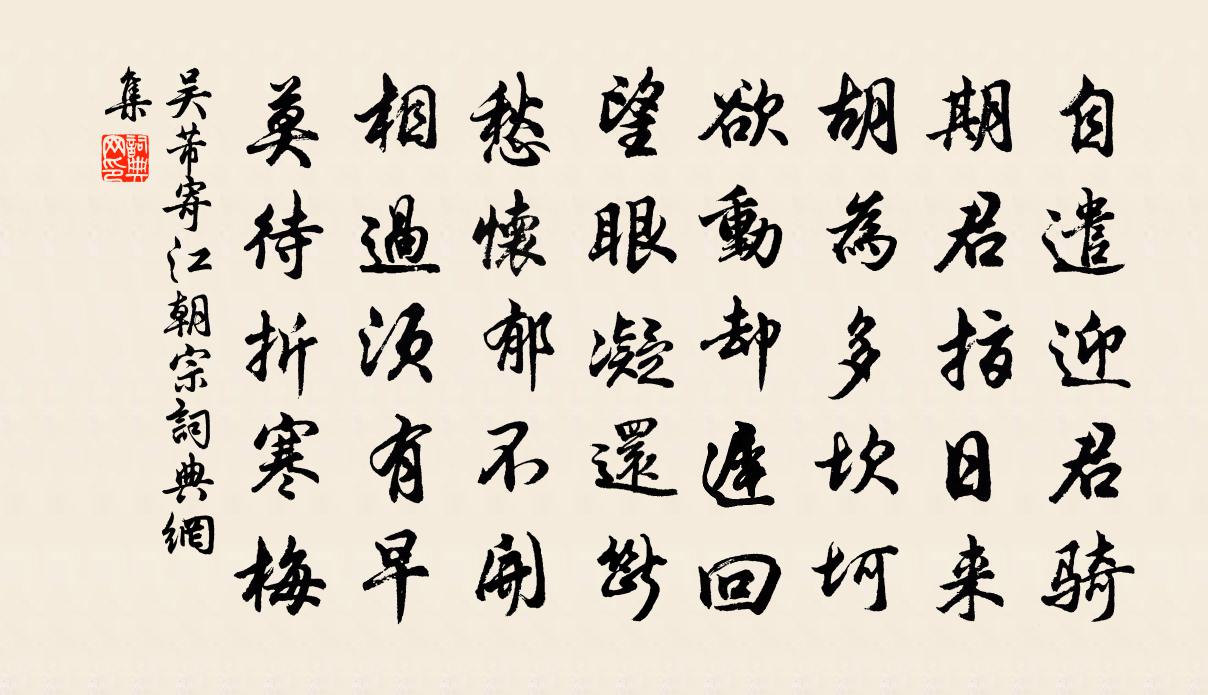 自遣迎君骑
期君指日来
胡為多坎坷
欲動却遲回
望眼凝還斷
愁懷郁不開
相過須有早
莫待折寒梅
吴芾寄江朝宗詞典網
集
詞典
网印